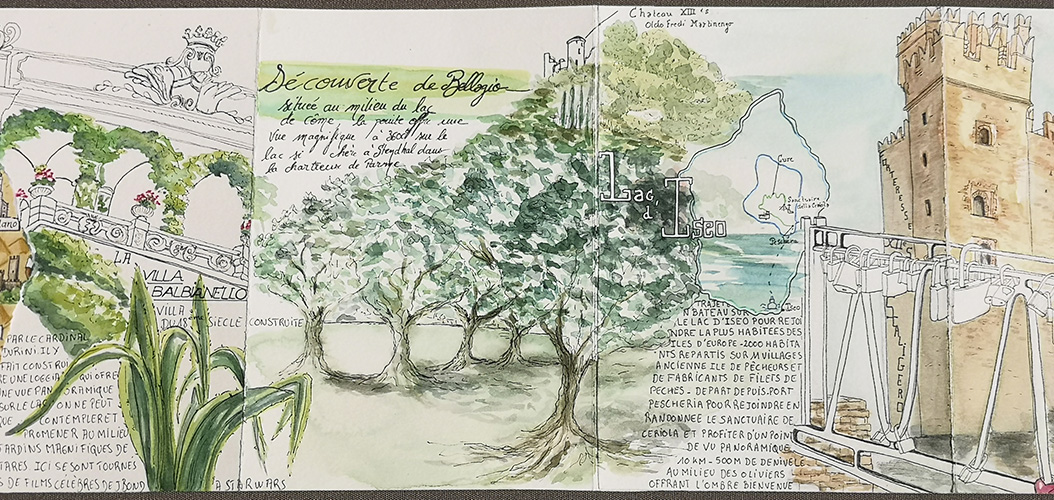 LA
VILLA
BALBIANELLO
VILLA
DU 18ème SIECLE
CONSTRUITE
PAR LE CARDINAL
DURINI. IL Y
FAIT CONSTRUI
RE UNE LOGGIA QUI OFRE
UNE VUE PANORAMIQUE
SUR LE LAC ON NE PEUT
QUE CONTEMPLER ET
PROMENER AU MILIEU
JARDINS MAGNIFIQUES DE
TARES ICI SE SONT TOURNES
S DE FILMS CELEBRES DE J BOND
A STARWARS
Découverte de Bellagio
située au milieu du lac
de Côme, la pointe offre une
vue magnifique à 360° sur le
lac si chèr à Stendhal dans
la chartreux de Parme
Chateau XIII's
Oldo Fredi Martinengo
Lac
d'
Iseo
Cure
Sanctuaire
Peschiera
Iseo
TRAJET
N BATEAU SUR
LE LAC D'ISEO POUR REJOI
NDRE LA PLUS HABITEES DES
ILES D'EUROPE - 2000 HABITA
NTS REPARTIS SUR 11 VILLAGES
ANCIENNE ILE DE PÊCHEURS ET
DE FABRICANTS DE FILETS DE
PECHES - DEPART DEPUIS PORT
PESCHERIA POUR REJOINDRE EN
RANDONNEE LE SANCTUAIRE DE
CERIOLA ET PROFITER D'UN POINT
DE VU PANORAMIQUE
10 KM - 500M DE DENIVELE
AU MILIEU DES OLIVIERS
OFFRANT L'OMBRE BIENVENUE
FORTERESSE
XIIIe
SCALIGERO